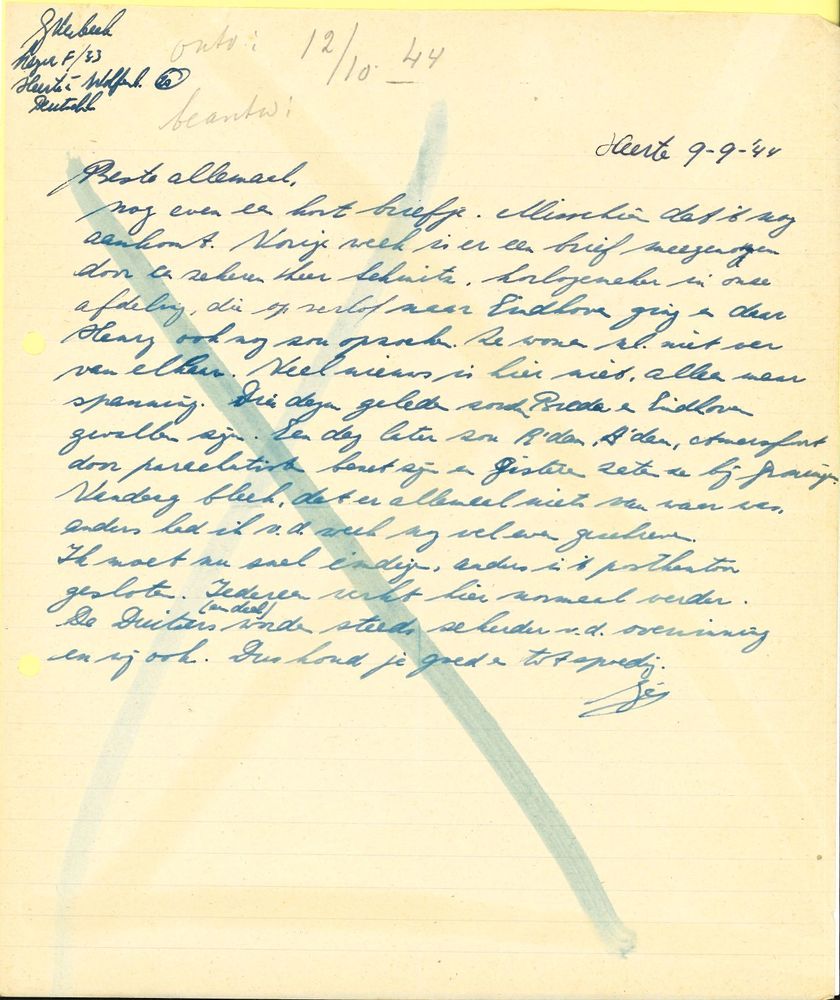 G Verbeek
Lager F/33
Heerte ü Wolfenb. 20
Deutschl.
ontv: 12/10. 44
beantw:
Heerte 9-9-'44
Beste allemaal,
nog even een kort briefje. Misschien dat 't nog
aankomt. Vorige week is er een brief meegenomen
door een zekeren Heer Schmitz, horlogemaker in onze
afdeling, die op verlof naar Eindhoven ging en daar
Henry ook nog zou opzoeken. Ze wonen nl. niet ver
van elkaar. Veel nieuws is hier niet, alleen maar
spanning. Drie dagen geleden zouden Breda en Eindhoven
gevallen zijn. Een dag later zou R'dam, A'dam, Amersfoort
door parachutisten bezet zijn en Gisteren zaten ze bij Groningen
Vandaag bleek, dat er allemaal niets van waar was,
anders had ik v.d. week nog wel even geschreven.
Ik moet nu snel eindigen, anders is 't postkantoor
gesloten. Iedereen werkt hier normaal verder.
De Duitsers (en deel) worden steeds zekerder v.d. overwinning
en wij ook. Dus houd je goed en tot spoedig.
Gé